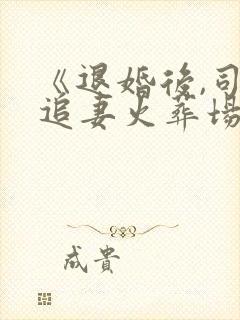 《退婚後,司
追妻火葬場
成貴